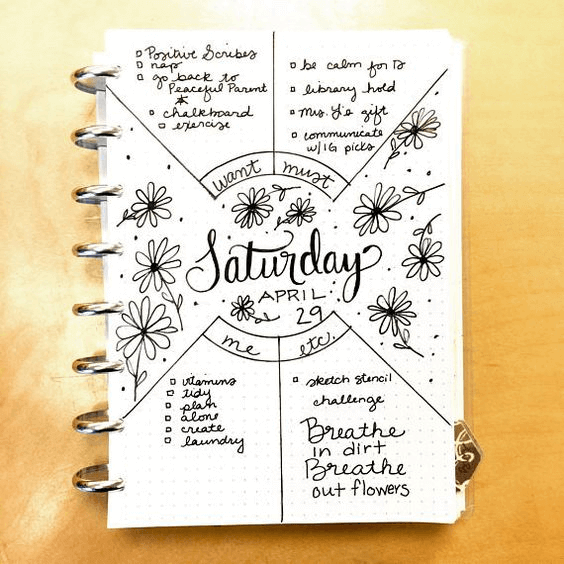 Positive Scribes
nap
go back to
Peaceful Parent
chalkboard
exercise
be calm for B
library hold
Mrs. Y's gift
communicate
w/IG picks
want
must
Saturday
APRIL
29
me
etc.
vitamins
tidy
plan
alone
create
laundry
sketch stencil
challenge
Breathe
in dirt
Breathe
out flowers